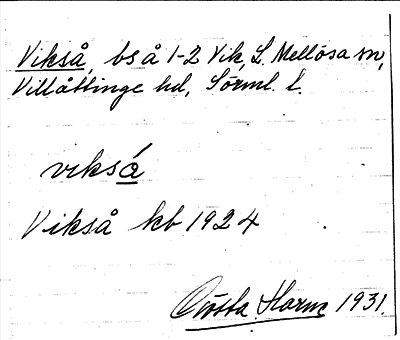 Vikså, bs å 1-2 Vik, L. Mellösa sn,
Villåttinge hd, Sörml. l.
viksá
Vikså kb 1924
Gösta Harm 1931.